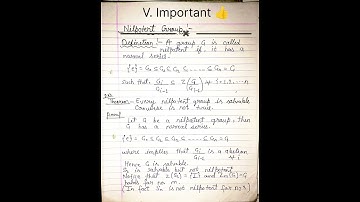 V. Important 👍
Nilpotent Group :-
Definition :- A group G is called
nilpotent if it has a
normal series.
{e} = G₀ ⊆ G₁ ⊆ G₂ ⊆ ...... ⊆ Gₙ = G
such that Gᵢ/Gᵢ₋₁ ⊆ Z(G/Gᵢ₋₁) ∀ i = 1,2...n
Theorem - Every nilpotent group is solvable
Converse is not true.
Proof:
Let G be a nilpotent group, then
G has a normal series.
{e} = G₀ ⊆ G₁ ⊆ G₂ ⊆ ...... ⊆ Gₙ = G
where implies that Gᵢ/Gᵢ₋₁ is abelian ∀ i
Hence G is solvable.
S₃ is solvable but not nilpotent
Notice that Z(S₃) = {I} and
for no n.
(In fact Sₙ is not nilpotent for n≥3)